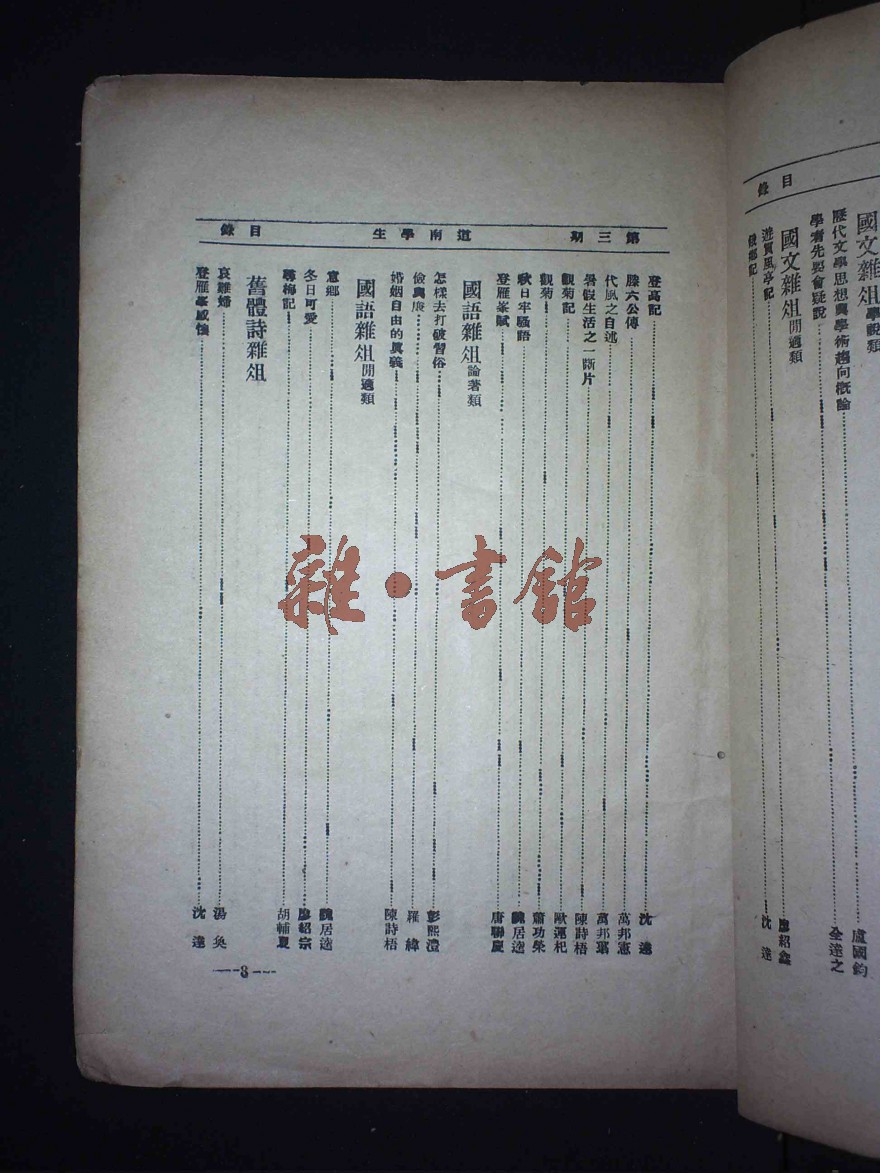 國文雜俎學說類
歷代文學思想與學術趨向概論 盧國鈞
學者先要會疑說 全達之
國文雜俎閒適類
遊賀風亭記 廖紹鑫
鄉記 沈達
目錄
第三期 道南學生 目錄
登高記 沈達
滕六公傳 萬邦憲
代風之自述 萬邦
暑假生活之一斷片 陳詩梧
觀菊記 歐運杞
觀菊 蕭功榮
秋日牢騷語 魏居逵
登雁峯賦 唐聯慶
國語雜俎論著類
怎樣去打破習俗 彭熙澧
儉與廉 羅緯
婚姻自由的眞義 陳詩梧
國語雜俎閒適類
鄉 魏居逵
冬日可愛 廖紹宗
尋梅記 胡輔夏
舊體詩雜俎
哀離婚 湯奐
登雁峯感懷 沈達
—3—
雜·書館